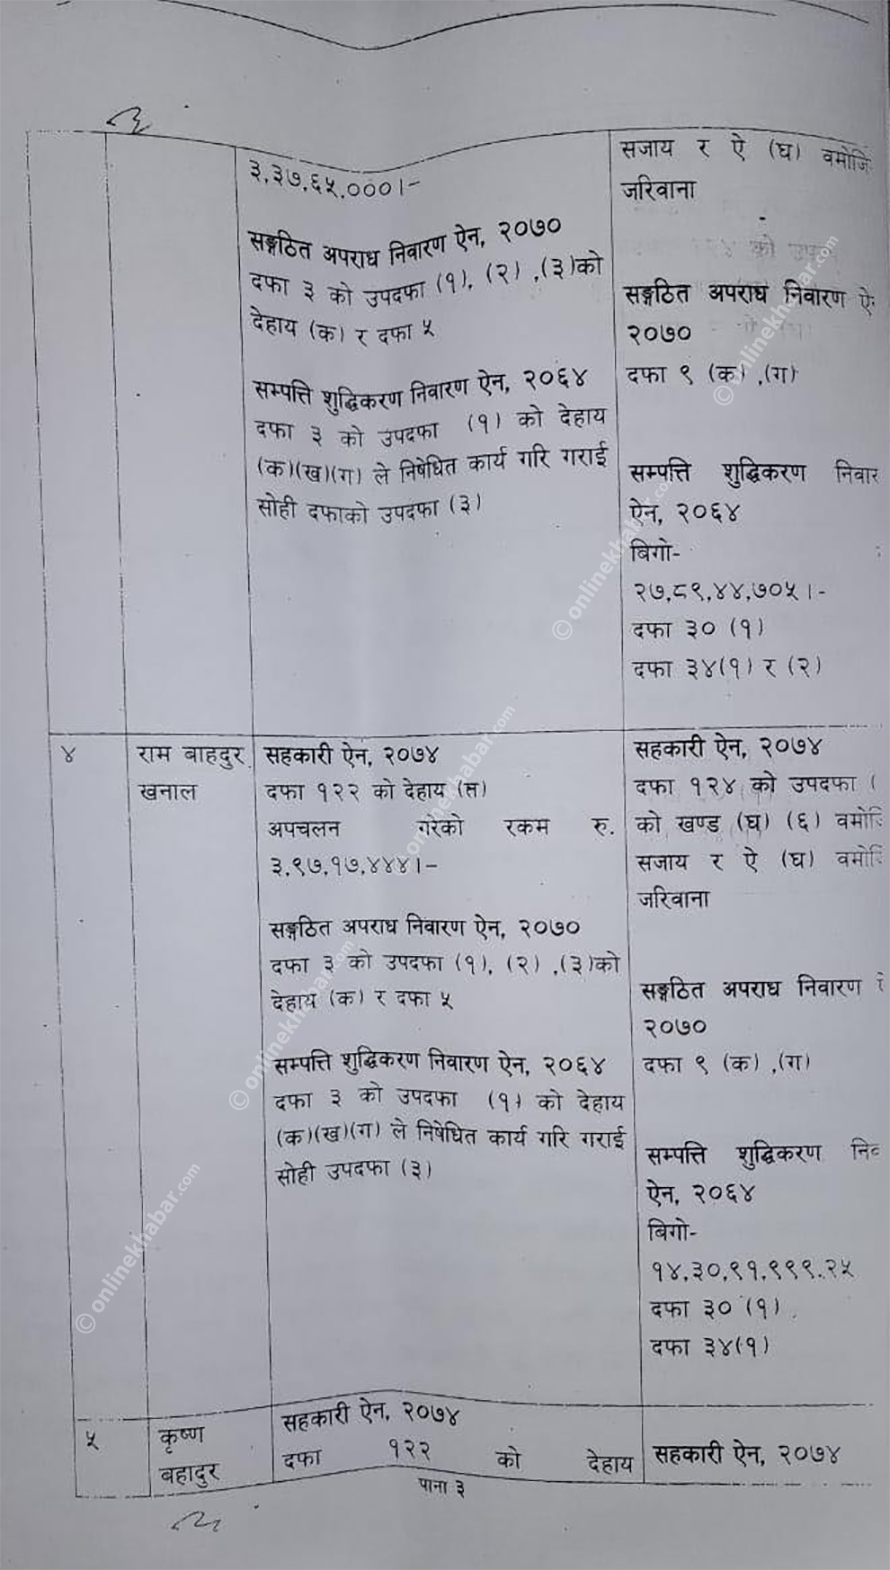 ३,३७,६५,०००।-
सङ्गठित अपराध निवारण ऐन, २०७०
दफा ३ को उपदफा (१), (२) ,(३)को
देहाय (क) र दफा ५
सम्पत्ति शुद्धिकरण निवारण ऐन, २०६४
दफा ३ को उपदफा (१) को देहाय
(क)(ख)(ग) ले निषेधित कार्य गरि गराई
सोही दफाको उपदफा (३)
सजाय र ऐ (घ) वमोजि
जरिवाना
सङ्गठित अपराध निवारण ऐ
२०७०
दफा ९ (क) ,(ग)
सम्पत्ति शुद्धिकरण निवार
ऐन, २०६४
बिगो-
२७,८९,४४,७०५।-
दफा ३० (१)
दफा ३४(१) र (२)
४
राम बाहदुर
खनाल
सहकारी ऐन, २०७४
दफा १२२ को देहाय (त्त)
अपचलन गरेको रकम रु.
३,९७,१७,४४४।-
सङ्गठित अपराध निवारण ऐन, २०७०
दफा ३ को उपदफा (१), (२) ,(३)को
देहाय (क) र दफा ५
सम्पत्ति शुद्धिकरण निवारण ऐन, २०६४
दफा ३ को उपदफा (१) को देहाय
(क)(ख)(ग) ले निषेधित कार्य गरि गराई
सोही उपदफा (३)
सहकारी ऐन, २०७४
दफा १२४ को उपदफा (
को खण्ड (घ) (६) वमोजि
सजाय र ऐ (घ) वमोजि
जरिवाना
सङ्गठित अपराध निवारण
२०७०
दफा ९ (क) ,(ग)
सम्पत्ति शुद्धिकरण निव
ऐन, २०६४
बिगो-
१४,३०,९१,९९९.२५
दफा ३० (१)
दफा ३४(१)
५
कृष्ण
बहादुर
सहकारी ऐन, २०७४
दफा १२२ को देहाय
सहकारी ऐन, २०७४
पाना ३
© onlinekhabar.com
© onlinekhabar.com
© onlinekhabar.com
© onlinekhabar.com
© onlinekhabar.com